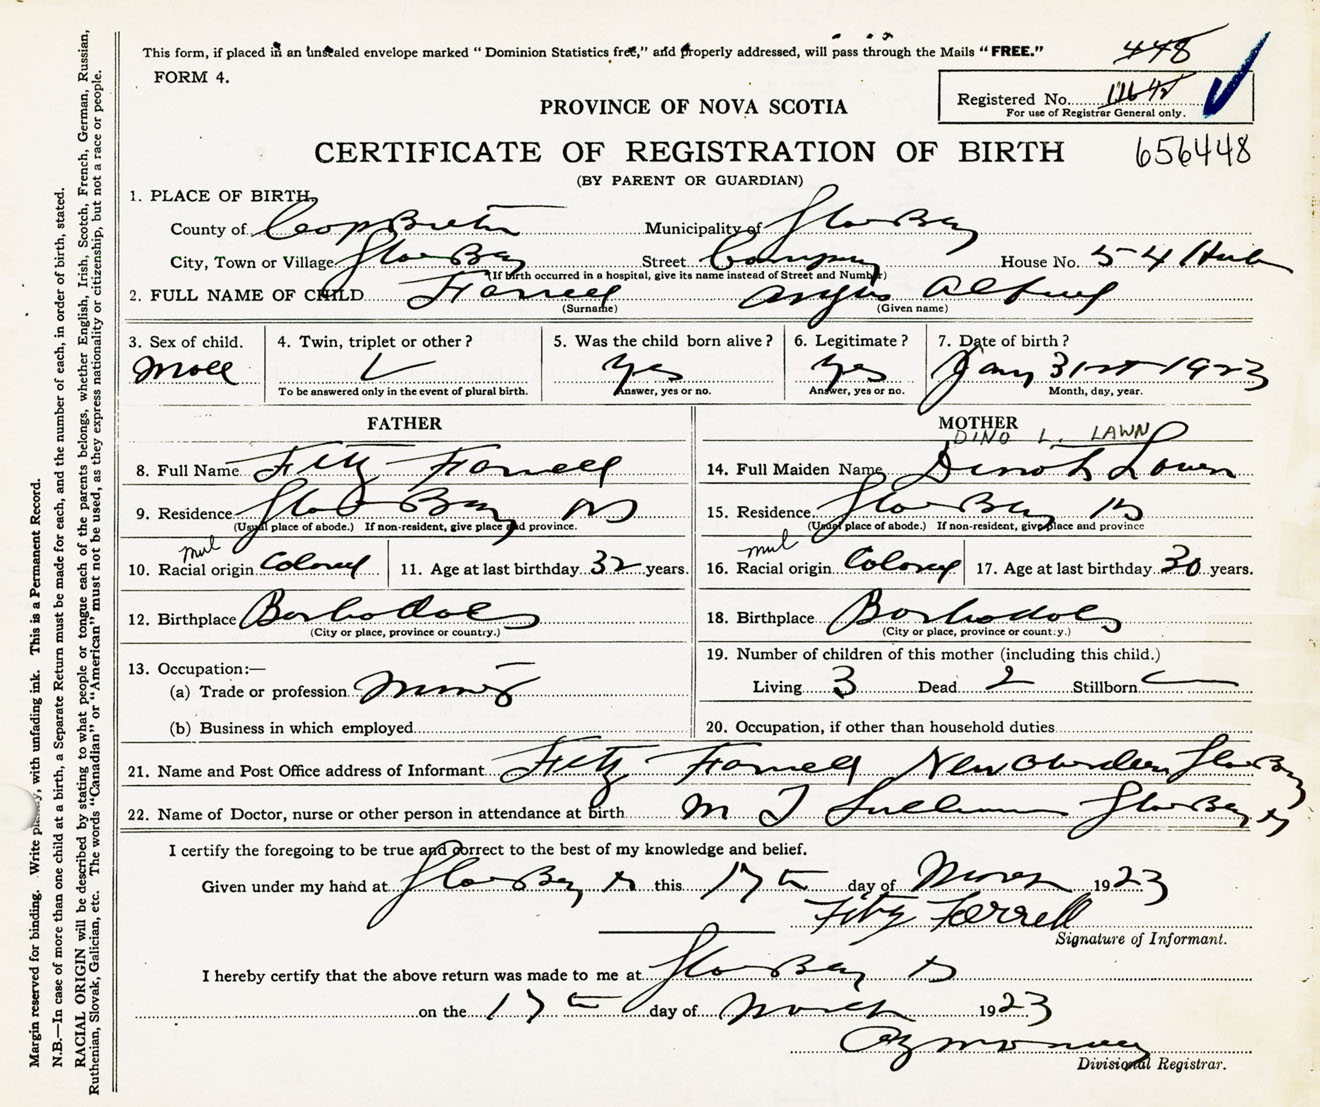 This form, if placed in an unsealed envelope marked "Dominion Statistics free," and properly addressed, will pass through the Mails "FREE."
448
FORM 4.
Registered No.
For use of Registrar General only.
PROVINCE OF NOVA SCOTIA
CERTIFICATE OF REGISTRATION OF BIRTH
656448
(BY PARENT OR GUARDIAN)
1. PLACE OF BIRTH,
County of Cape Breton Municipality of Glace Bay
City, Town or Village Glace Bay Street Company House No. 54
(If birth occurred in a hospital, give its name instead of Street and Number)
2. FULL NAME OF CHILD Farrell Angus Alfred
(Surname) (Given name)
3. Sex of child. 4. Twin, triplet or other? 5. Was the child born alive? 6. Legitimate? 7. Date of birth?
Male Yes Yes Jany 31st 1923
To be answered only in the event of plural birth. Answer, yes or no. Answer, yes or no. Month, day, year.
FATHER MOTHER
DINO L. LAWN
8. Full Name Fitz Farrell 14. Full Maiden Name Dinot Lawn
9. Residence Glace Bay NS 15. Residence Glace Bay NS
(Usual place of abode.) If non-resident, give place and province. (Usual place of abode.) If non-resident, give place and province
mul mul
10. Racial origin Colored 11. Age at last birthday 32 years. 16. Racial origin Colored 17. Age at last birthday 30 years.
12. Birthplace Barbadoes 18. Birthplace Barbadoes
(City or place, province or country.) (City or place, province or country.)
13. Occupation:— 19. Number of children of this mother (including this child.)
(a) Trade or profession Mining Living 3 Dead 2 Stillborn
(b) Business in which employed 20. Occupation, if other than household duties
21. Name and Post Office address of Informant Fitz Farrell New Aberdeen Glace Bay
22. Name of Doctor, nurse or other person in attendance at birth M T Sullivan Glace Bay NS
I certify the foregoing to be true and correct to the best of my knowledge and belief.
Given under my hand at Glace Bay NS this 17th day of March 1923
Fitz Farrell
Signature of Informant.
I hereby certify that the above return was made to me at Glace Bay NS
on the 17th day of March 1923
Divisional Registrar.
Margin reserved for binding. Write plainly, with unfading ink. This is a Permanent Record.
N.B.—In case of more than one child at a birth, a Separate Return must be made for each, and the number of each, in order of birth, stated.
RACIAL ORIGIN will be described by stating to what people or tongue each of the parents belongs, whether English, Irish, Scotch, French, German, Russian,
Ruthenian, Slovak, Galician, etc. The words "Canadian" or "American" must not be used, as they express nationality or citizenship, but not a race or people.